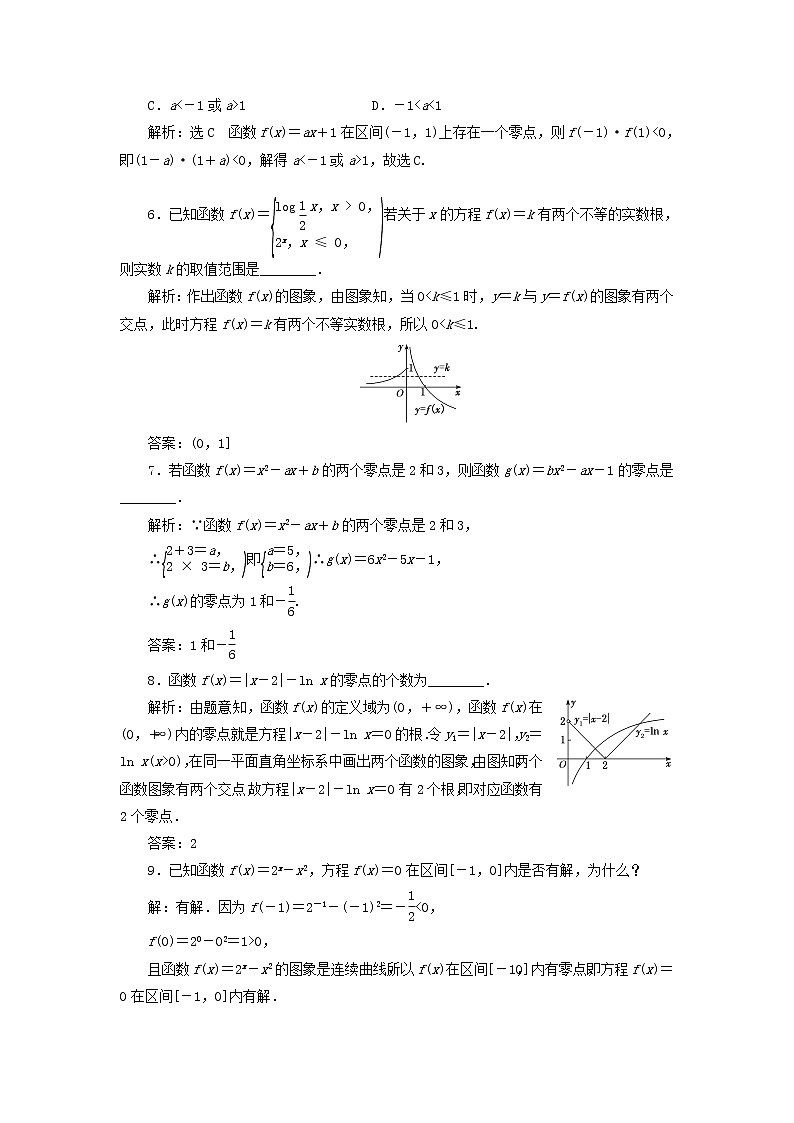 C．a<－1或a>1　　D．－1<a<1
解析：选C　函数f(x)＝ax＋1在区间(－1，1)上存在一个零点，则f(－1)·f(1)<0，
即(1－a)·(1＋a)<0，解得a<－1或a>1，故选C.
6．已知函数f(x)＝{log½x，x > 0，2ˣ，x ≤ 0，若关于x的方程f(x)＝k有两个不等的实数根，
则实数k的取值范围是________．
解析：作出函数f(x)的图象，由图象知，当0<k≤1时，y＝k与y＝f(x)的图象有两个
交点，此时方程f(x)＝k有两个不等实数根，所以0<k≤1.
y
1
y=k
O
1
x
y=f(x)
答案：(0，1]
7．若函数f(x)＝x²－ax＋b的两个零点是2和3，则函数g(x)＝bx²－ax－1的零点是
________．
解析：∵函数f(x)＝x²－ax＋b的两个零点是2和3，
∴{2＋3＝a，2 × 3＝b，即{a＝5，b＝6，∴g(x)＝6x²－5x－1，
∴g(x)的零点为1和－1/6.
答案：1和－1/6
8．函数f(x)＝|x－2|－ln x的零点的个数为________．
解析：由题意知，函数f(x)的定义域为(0，＋∞)，函数f(x)在
(0，＋∞)内的零点就是方程|x－2|－ln x＝0的根．令y₁＝|x－2|，y₂＝
ln x(x>0)，在同一平面直角坐标系中画出两个函数的图象，由图知，两个
函数图象有两个交点，故方程|x－2|－ln x＝0有2个根，即对应函数有
2个零点．
y
2
y₁=|x−2|
y₂=ln x
1
O
1
2
x
答案：2
9．已知函数f(x)＝2ˣ－x²，方程f(x)＝0在区间[－1，0]内是否有解，为什么？
解：有解．因为f(－1)＝2⁻¹－(－1)²＝－1/2<0，
f(0)＝2⁰－0²＝1>0，
且函数f(x)＝2ˣ－x²的图象是连续曲线，所以f(x)在区间[－1，0]内有零点，即方程f(x)＝
0在区间[－1，0]内有解．